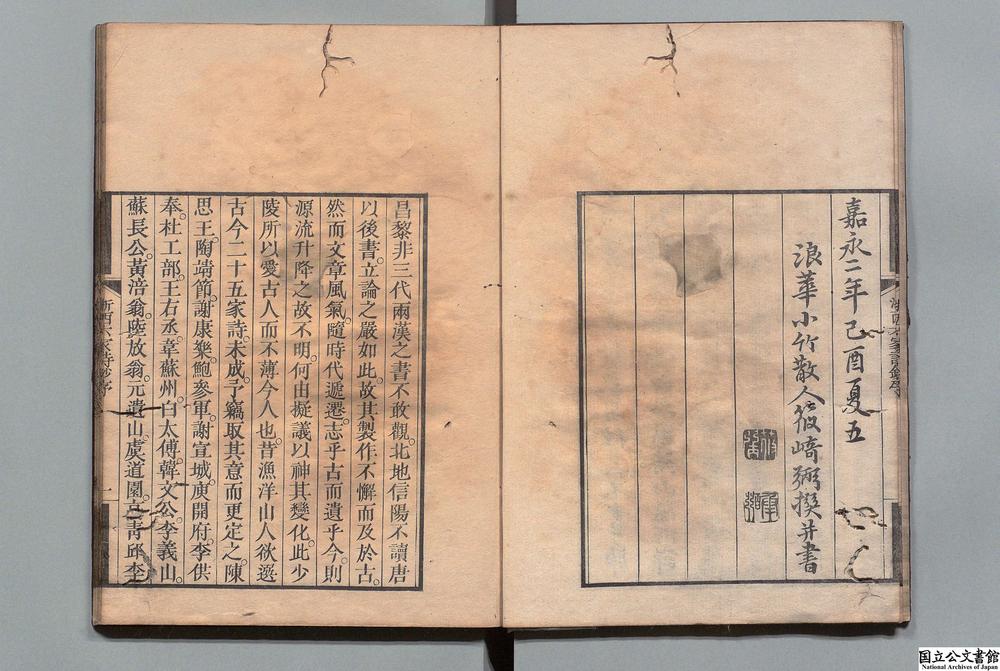 嘉永二年己酉夏五
浪華小竹散人筱崎弼撰并書
昌黎非三代兩漢之書不敢觀。北地信陽不讀唐
以後書。立論之嚴如此。故其製作不懈而及於古。
然而文章風氣。隨時代遞遷。志乎古而遺乎今。則
源流升降之故不明。何由擬議以神其變化。此少
陵所以愛古人而不薄今人也。昔漁洋山人欲選
古今二十五家詩。未成。予竊取其意而更定之。陳
思王。陶靖節。謝康樂。鮑參軍。謝宣城。庾開府。李供
奉。杜工部。王右丞。韋蘇州。白太傅。韓文公。李義山。
蘇長公。黃涪翁。陸放翁。元遺山。虞道園。高青邱。李
浙西六家詩鈔序
一
国立公文書館
National Archives of Japan